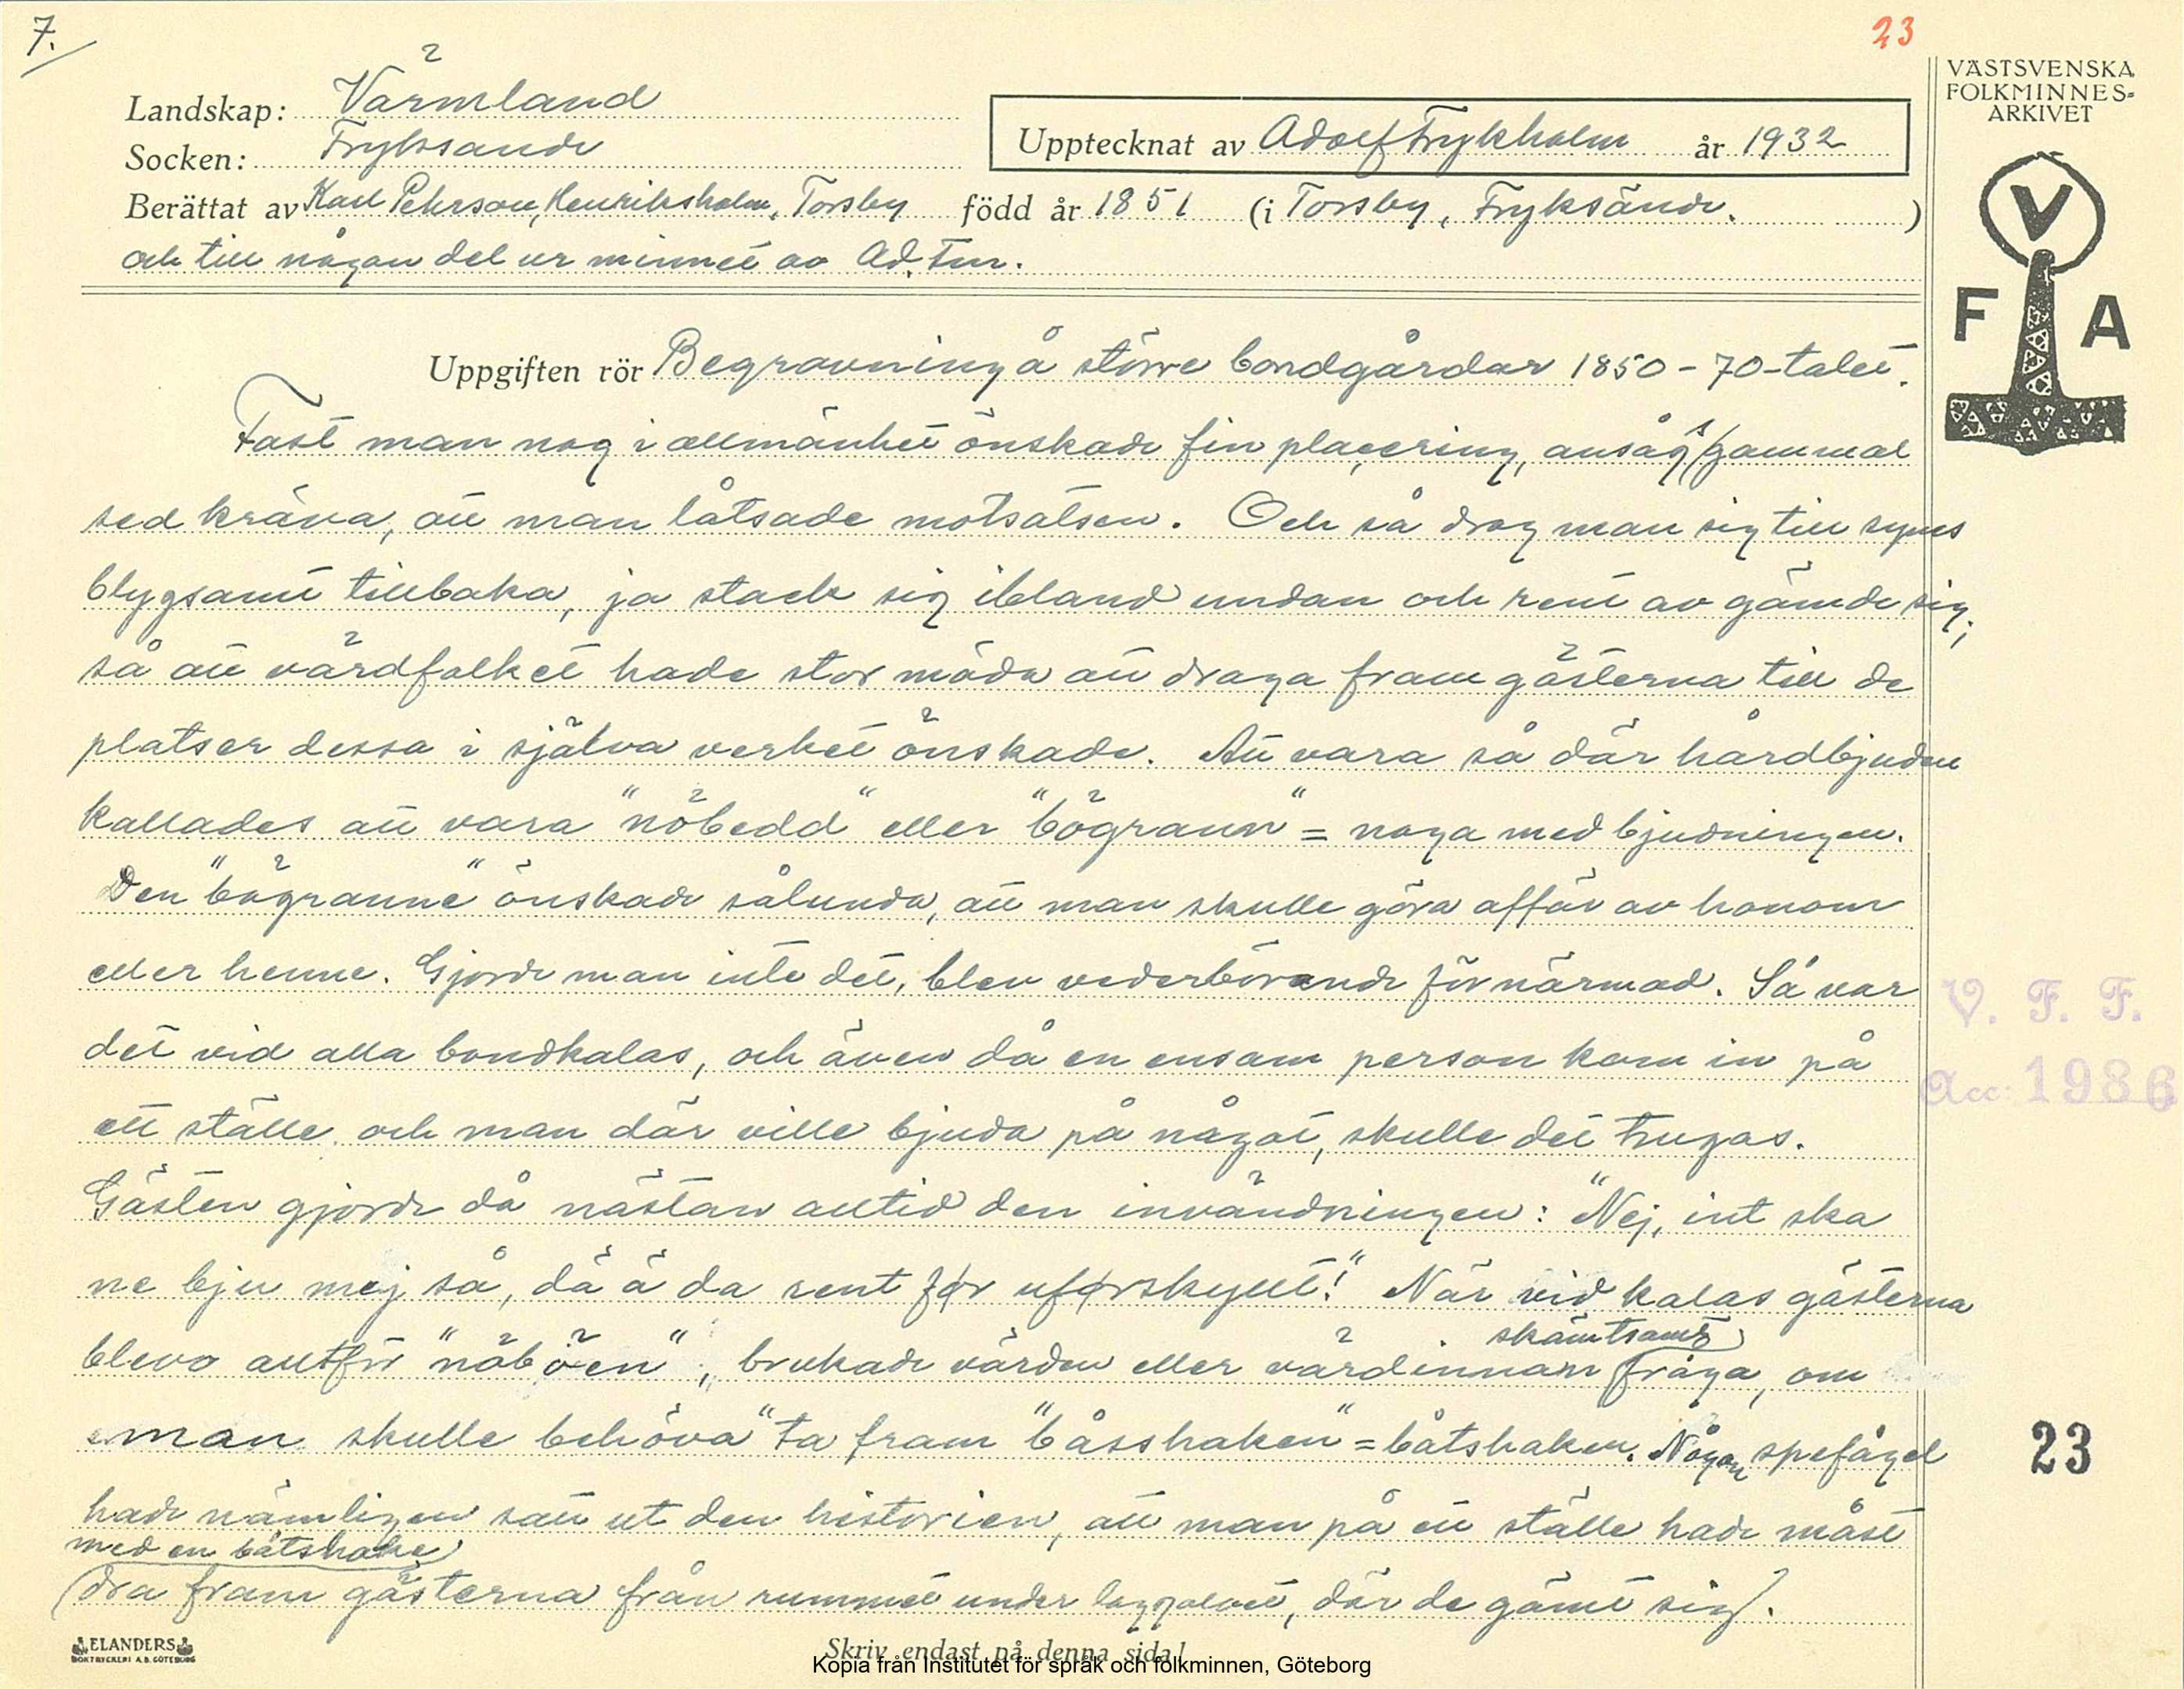 7.
23
Landskap: Värmland
Socken: Fryksände
Upptecknat av Adolf Frykholm år 1932
Berättat av Karl Pehrson, Henriksholm, Torsby född år 1851 (i Torsby, Fryksände. )
och till någon del ur minnet av Ad. Fm.
VÄSTSVENSKA
FOLKMINNES-
ARKIVET
V
F A
Uppgiften rör Begravning å större bondgårdar 1850-70-talet.
Fast man nog i allmänhet önskade fin placering, ansågs gammal
sed kräva, att man låtsade motsatsen. Och så drog man sig till synes
blygsamt tillbaka, ja stack sig ibland undan och rent av gämde sig,
så att värdfolket hade stor möda att draga fram gästerna till de
platser dessa i själva verket önskade. Att vara så där hårdbjuden
kallades att vara "nöbedd" eller "bögrann" = noga med bjudningen.
Den "bögranne" önskade sålunda, att man skulle göra affär av honom
eller henne. Gjorde man inte det, blev vederbörande förnärmad. Så var
det vid alla bondkalas, och även då en ensam person kom in på
ett ställe och man där ville bjuda på något, skulle det trugas.
Gästen gjorde då nästan alltid den invändningen: "Nej, int ska
ne bju mej så, dä ä da rent før uførskyllt!" När vid kalas gästerna
blevo alltför "nöböen", brukade värden eller värdinnan skämtsamt fråga, om
man skulle behöva "ta fram "båsshaken" = båtshaken. Någon spefågel
hade nämligen satt ut den historien, att man på ett ställe hade måst
med en båtshake
dra fram gästerna från rummet under loggolvet, där de gämt sig.
V. F. F.
Acc: 1986
23
ELANDERS
BOKTRYCKERI A.B. GÖTEBORG
Skriv endast på denna sida!
Kopia från Institutet för språk och folkminnen, Göteborg